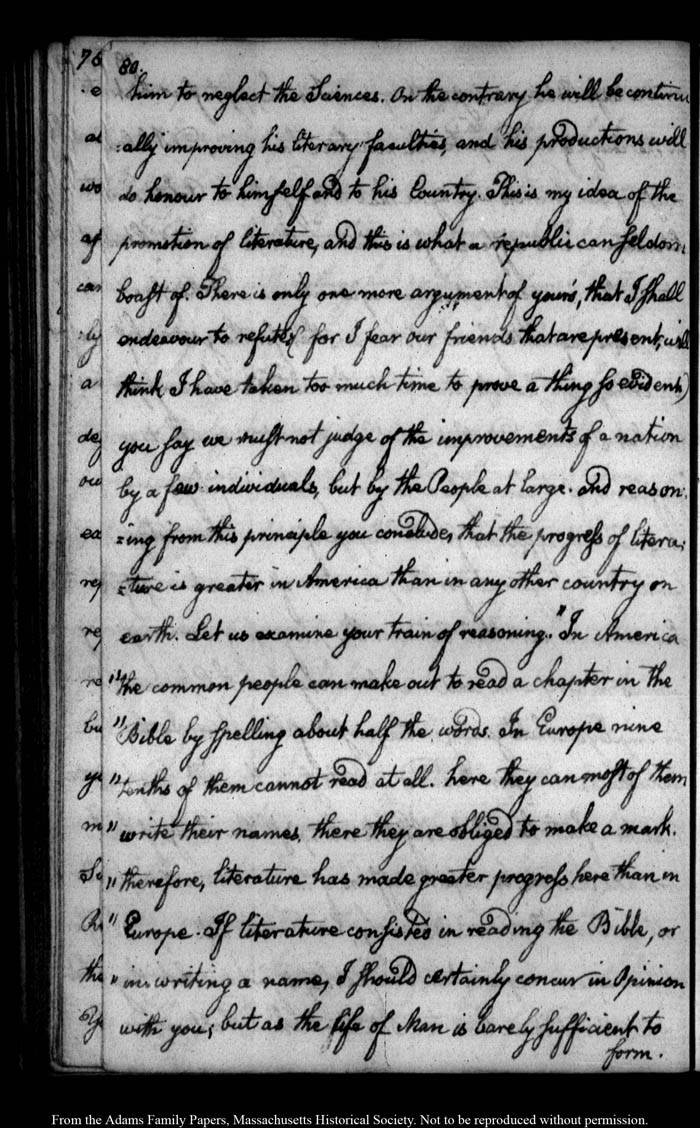 76
80.
him to neglect the Sciences. On the contrary he will be continu
:ally improving his literary faculties, and his productions will
do honour to himself and to his Country. This is my idea of the
promotion of literature, and this is what a republic can seldom
boast of. There is only one more argument of your's, that I shall
endeavour to refute; (for I fear our friends that are present, will
think I have taken too much time to prove a thing so evident)
you say we must not judge of the improvements of a nation
by a few individuals, but by the People at large. and reason:
:ing from this principle you conclude, that the progress of litera:
:ture is greater in America than in any other country on
earth. Let us examine your train of reasoning. "In America
"the common people can make out to read a chapter in the
"Bible by spelling about half the words. In Europe nine
"tenths of them cannot read at all. here they can most of them
"write their names, there they are obliged to make a mark.
"therefore, literature has made greater progress here than in
"Europe. If literature consisted in reading the Bible, or
"in writing a name, I should certainly concur in Opinion
with you; but as the life of Man is barely sufficient to
form.
From the Adams Family Papers, Massachusetts Historical Society. Not to be reproduced without permission.